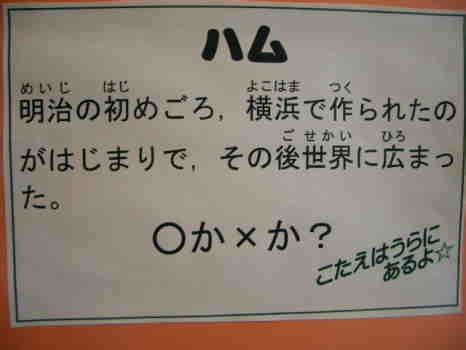 ハム
めいじ はじ よこはま つく
明治の初めごろ，横浜で作られたの
ご せかい ひろ
がはじまりで，その後世界に広まっ
た。
〇か×か？
こたえはうらに
あるよ☆